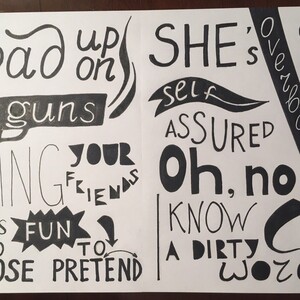 oad up
on
guns
ING YOUR
FRIENDS
s FUN
O TO
OSE PRETEND
SHE's
overbo
self
ASSURED
Oh, no
I KNOW
A DIRTY
wor